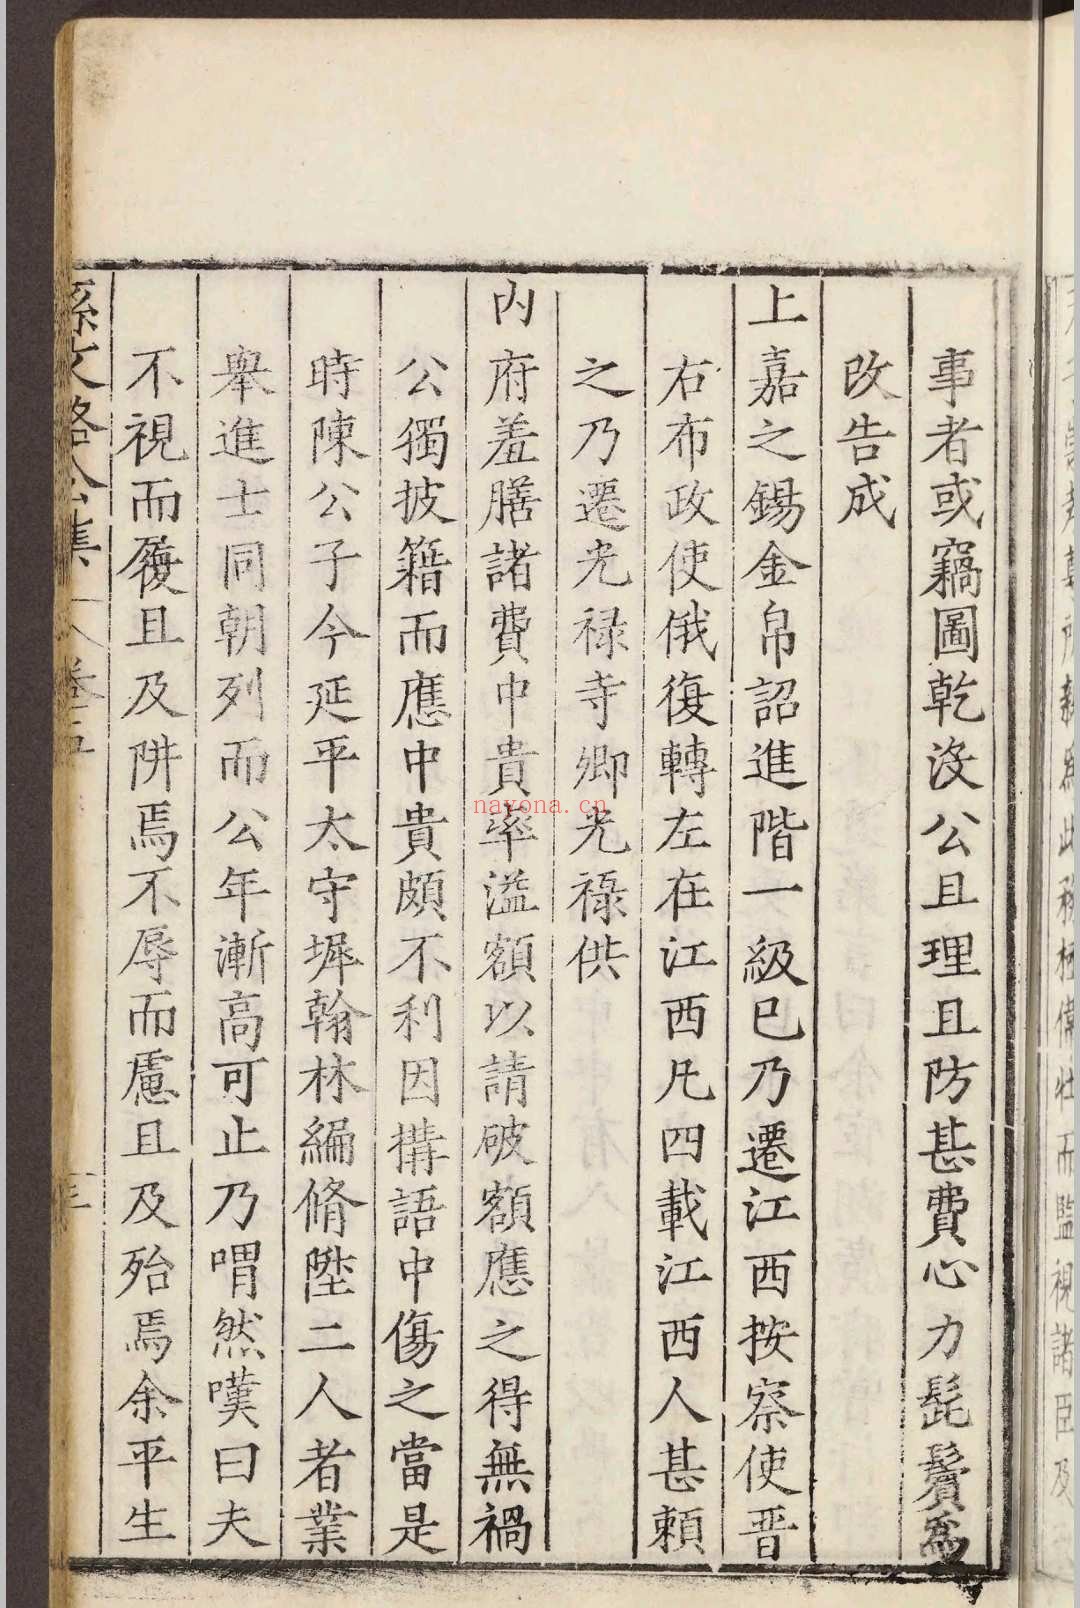 事者或竊圖乾沒公且理且防甚費心力髭鬢為
改告成
上嘉之錫金帛詔進階一級已乃遷江西按察使晋
右布政使俄復轉左在江西凡四載江西人甚賴
之乃遷光禄寺卿光禄供
内府羞膳諸費中貴率溢額以請破額應之得無禍
公獨披籍而應中貴頗不利因搆語中傷之當是
時陳公子今延平太守墀翰林編脩陞二人者業
舉進士同朝列而公年漸高可止乃喟然嘆曰夫
不視而履且及阱焉不辱而慮且及殆焉余平生
孫文恪公集
卷五
nayona.cn